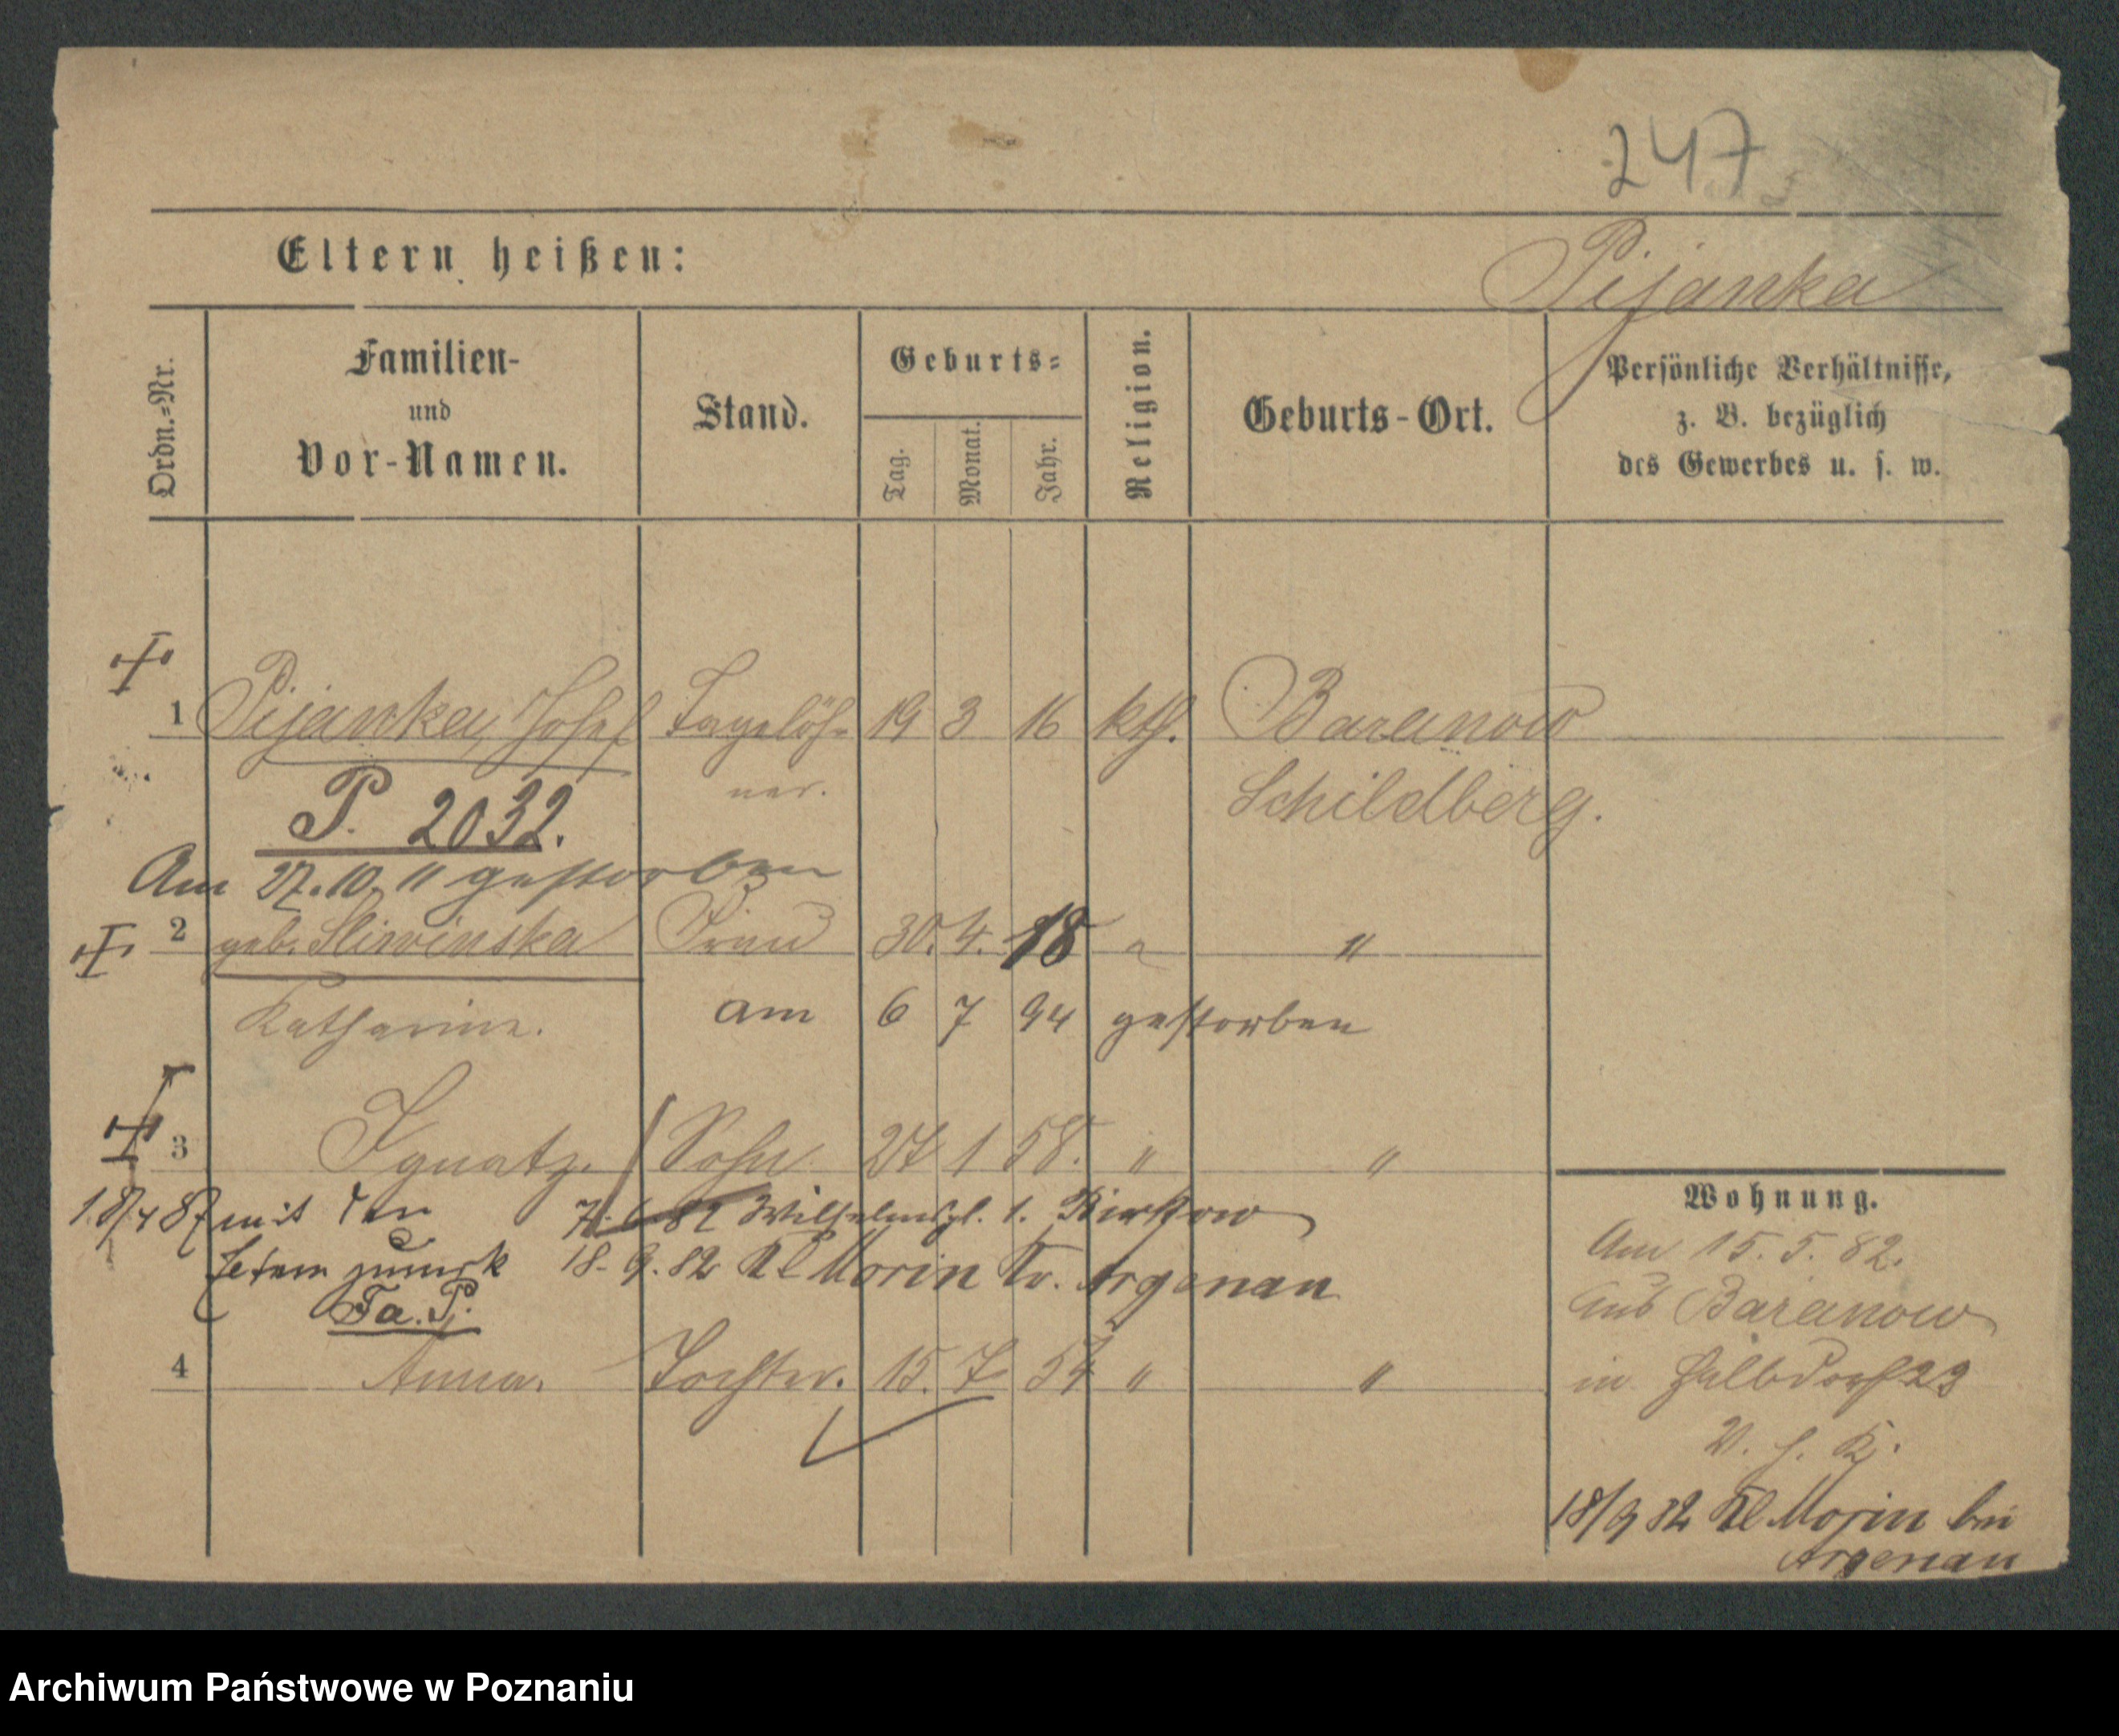 247
Eltern heißen:
Pijanka
Ordn.=Nr.
Familien-
und
Vor-Namen.
Stand.
Geburts=
Tag.
Monat.
Jahr.
Religion.
Geburts-Ort.
Persönliche Verhältnisse,
z. B. bezüglich
des Gewerbes u. s. w.
1 Pijanka, Josef Tagelöh- 19 3 16 kth. Baranow
ner. Schildberg.
P. 2032.
Am 27.10. 11 gestorben
2 geb. Sliwinska Frau 30. 4. 18 " "
Katharine. am 6 7 94 gestorben
3 Ignatz. Sohn 27 1 58. " "
18/4 87 mit den 7. 6 82 Wilhelmspl. 1.
zurück 18. 9. 82 Kl Morin Kr. Argenau
Fa. P.
4 Anna. Tochter. 15. 7 54 " "
Wohnung.
Am 15. 5. 82.
aus Baranow
in Halbdorf 23
18/9 82 Kl Morin bei
Argenau
Archiwum Państwowe w Poznaniu